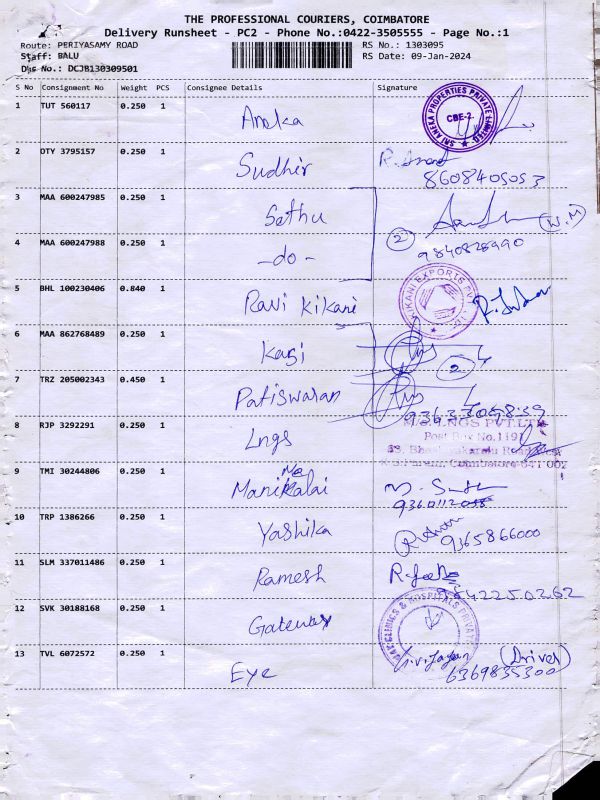 THE PROFESSIONAL COURIERS, COIMBATORE
Delivery Runsheet - PC2 - Phone No.:0422-3505555 - Page No.:1
Route: PERIYASAMY ROAD
RS No.: 1303095
Staff: BALU
RS Date: 09-Jan-2024
DRS No.: DCJB130309501
S No Consignment No Weight PCS Consignee Details Signature
1 TUT 560117 0.250 1 Aneka
SRI ANEKA PROPERTIES PRIVATE LIMITED
CBE-2.
2 DTY 3795157 0.250 1 Sudhir R. Anand
8608405053
3 MAA 600247985 0.250 1 Sethu (W.M)
2
9840828990
4 MAA 600247988 0.250 1 -do-
5 BHL 100230406 0.840 1 Ravi Kikani
KIKANI EXPORTS PVT
6 MAA 862768489 0.250 1 Kagi
2
7 TRZ 205002343 0.450 1 Patiswaran
9363309839
8 RJP 3292291 0.250 1 Lngs
M/s. LNGS PVT.LTD
Post Box No.119
Coimbatore-641 002
9 TMI 30244806 0.250 1 Manikalai
9360112038
10 TRP 1386266 0.250 1 Yashika
9365866000
11 SLM 337011486 0.250 1 Ramesh
9842250262
12 SVK 30188168 0.250 1 Gateway
CLINICS & HOSPITALS PRIVATE
13 TVL 6072572 0.250 1 Eye (Driver)
6369835300